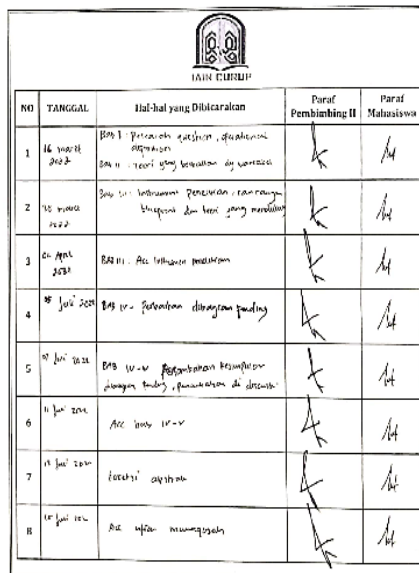 IAIN CURUP
NO TANGGAL Hal-hal yang Dibicarakan Paraf Pembimbing II Paraf Mahasiswa
1 16 maret 2022 BAB I : Research question, operational
BAB II : teori yang berkaitan dg variabel
2 maret 2022 BAB III : Instrument penelitian, rancangan
blueprint dan teori yang mendukung
3 April 2022 BAB III : Acc instrumen penelitian
4 05 Juli 2022 BAB IV - Perbaikan dibagian finding
5 07 Juli 2022 BAB IV-V
dibagian finding, penambahan di
6 11 Juli 2022 Acc bab IV-V
7 abstrak
8 Acc ujian munaqosah